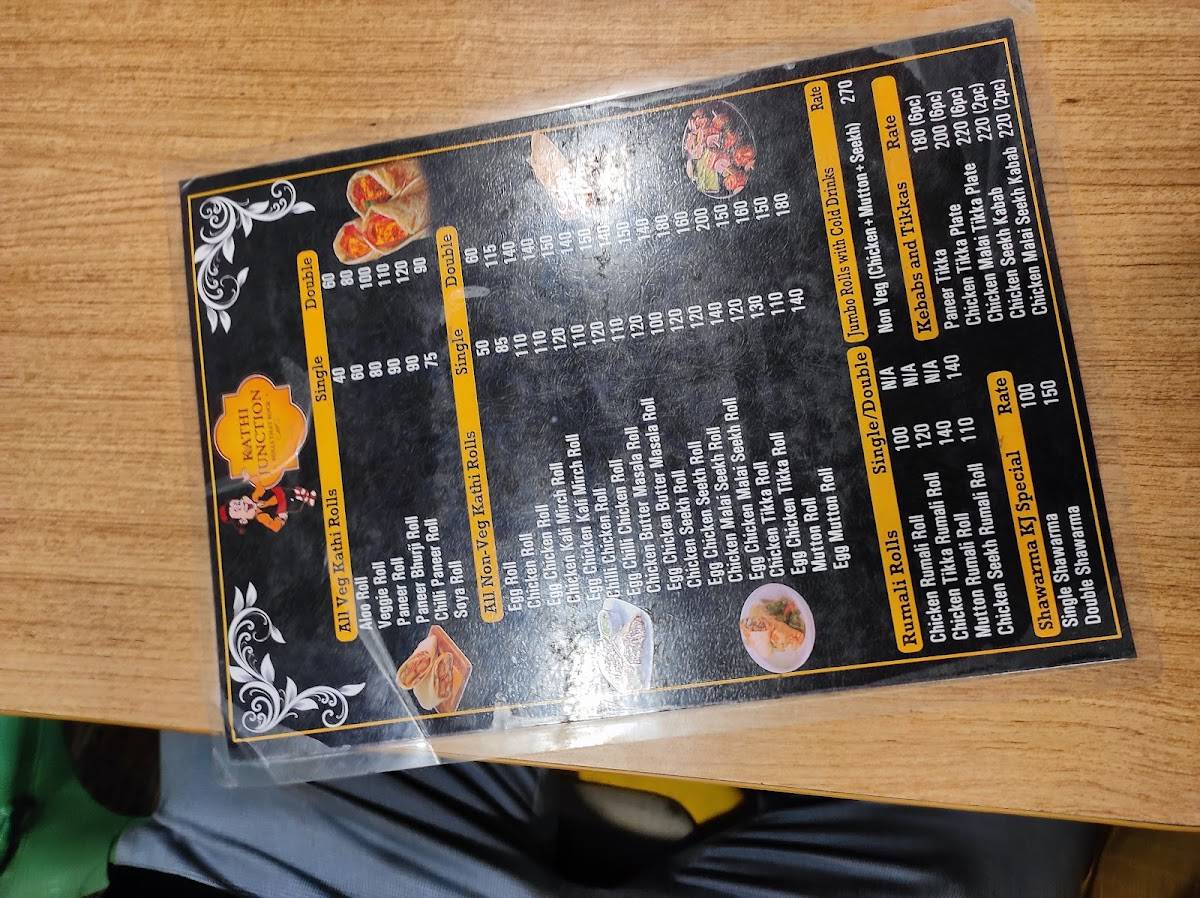 KATHI
JUNCTION
ROLLS THAT ROCK
All Veg Kathi Rolls Single Double
Aloo Roll 40 60
Veggie Roll 60 80
Paneer Roll 80 100
Paneer Bhurji Roll 90 110
Chilli Paneer Roll 90 120
Soya Roll 75 90
All Non-Veg Kathi Rolls Single Double
Egg Roll 50 60
Chicken Roll 85 115
Egg Chicken Roll 110 140
Chicken Kali Mirch Roll 110 140
Egg Chicken Kali Mirch Roll 120 150
Chilli Chicken Roll 110 140
Egg Chilli Chicken Roll 120 150
Chicken Butter Masala Roll 110 140
Egg Chicken Butter Masala Roll 120 150
Chicken Seekh Roll 100 140
Egg Chicken Seekh Roll 120 180
Chicken Malai Seekh Roll 120 160
Egg Chicken Malai Seekh Roll 140 200
Chicken Tikka Roll 120 150
Egg Chicken Tikka Roll 130 160
Mutton Roll 110 150
Egg Mutton Roll 140 180
Rumali Rolls Single/Double
Chicken Rumali Roll 100 N/A
Chicken Tikka Rumali Roll 120 N/A
Mutton Rumali Roll 140 N/A
Chicken Seekh Rumali Roll 110 140
Shawarma KJ Special Rate
Single Shawarma 100
Double Shawarma 150
Jumbo Rolls with Cold Drinks Rate
Non Veg (Chicken + Mutton + Seekh) 270
Kebabs and Tikkas Rate
Paneer Tikka 180 (6pc)
Chicken Tikka Plate 200 (6pc)
Chicken Malai Tikka Plate 220 (6pc)
Chicken Seekh Kabab 220 (2pc)
Chicken Malai Seekh Kabab 220 (2pc)